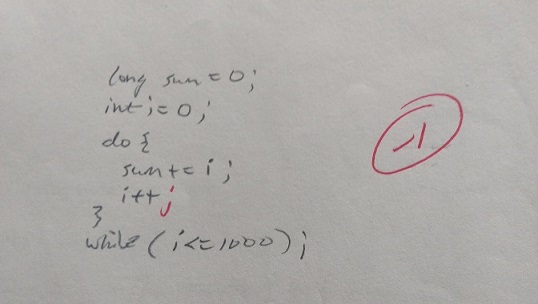 long sum = 0;
int i = 0;
do {
sum += i;
i++;
}
while (i <= 1000);
-1